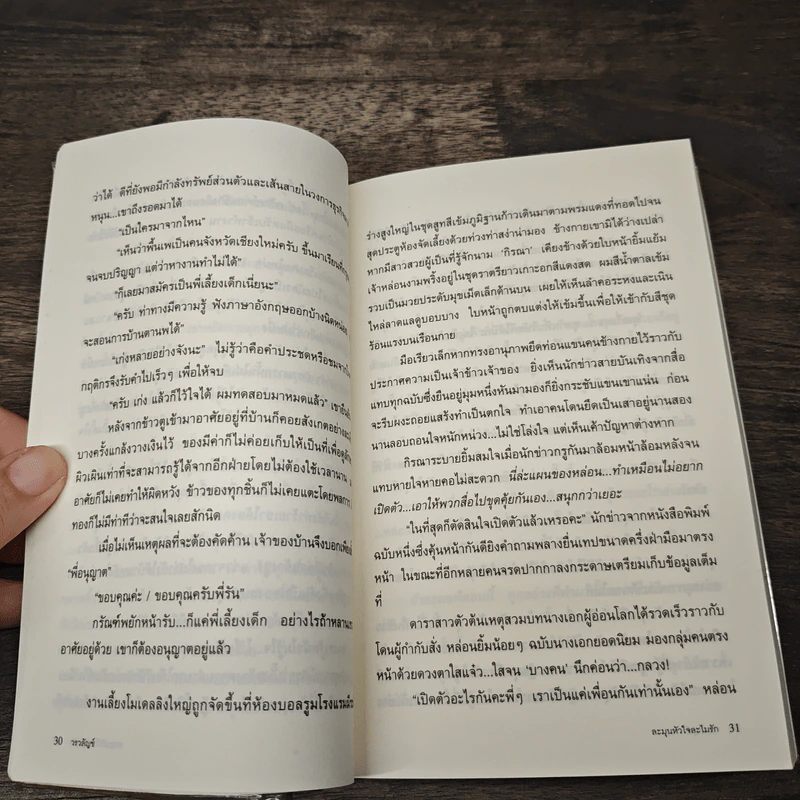 ว่าได้ ดีที่ยังพอมีกำลังทรัพย์ส่วนตัวและเส้นสายในวงการธุรกิจ
หนุน...เขาถึงรอดมาได้
“เป็นใครมาจากไหน”
“เห็นว่าพื้นเพเป็นคนจังหวัดเชียงใหม่ครับ ขึ้นมาเรียนที่
จนจบปริญญา แต่ว่าหางานทำไม่ได้”
“ก็เลยมาสมัครเป็นพี่เลี้ยงเด็กเนี่ยนะ”
“ครับ ท่าทางมีความรู้ ฟังภาษาอังกฤษออกบ้างนิดหน่อย
จะสอนการบ้านตานพได้”
“เก่งหลายอย่างจังนะ” ไม่รู้ว่าคือคำประชดหรือชมจาก
กฤติกรจึงรับคำไปเร็วๆ เพื่อให้จบ
“ครับ เก่ง แล้วก็ไว้ใจได้ ผมทดสอบมาหมดแล้ว” เขายืนยัน
หลังจากข้าวตูเข้ามาอาศัยอยู่ที่บ้านก็คอยสังเกตอย่าง
บางครั้งแกล้งวางเงินไว้ ของมีค่าก็ไม่ค่อยเก็บให้เป็นที่เพื่อดู
ผิวเผินเท่าที่จะสามารถรู้ได้จากอีกฝ่ายโดยไม่ต้องใช้เวลานาน
อาศัยก็ไม่เคยทำให้ผิดหวัง ข้าวของทุกชิ้นก็ไม่เคยแตะโดยพลการ
ทองก็ไม่มีท่าทีว่าจะสนใจเลยสักนิด
เมื่อไม่เห็นเหตุผลที่จะต้องคัดค้าน เจ้าของบ้านจึงบอกเพียง
“พี่อนุญาต”
“ขอบคุณค่ะ / ขอบคุณครับพี่รัน”
กรัณฑ์พยักหน้ารับ...ก็แค่พี่เลี้ยงเด็ก อย่างไรถ้าหลาน
อาศัยอยู่ด้วย เขาก็ต้องอนุญาตอยู่แล้ว
งานเลี้ยงโมเดลลิงใหญ่ถูกจัดขึ้นที่ห้องบอลรูมโรงแรม
30 วรวลัญช์
ร่างสูงใหญ่ในชุดสูทสีเข้มภูมิฐานก้าวเดินมาตามพรมแดงที่ทอดไปจน
สุดประตูห้องจัดเลี้ยงด้วยท่วงท่าสง่าน่ามอง ข้างกายเขามิได้ว่างเปล่า
หากมีสาวสวยผู้เป็นที่รู้จักนาม ‘กิรณา’ เคียงข้างด้วยใบหน้ายิ้มแย้ม
เจ้าหล่อนงามพริ้งอยู่ในชุดราตรียาวเกาะอกสีแดงสด ผมสีน้ำตาลเข้ม
รวบเป็นมวยประดับมุขเม็ดเล็กด้านบน เผยให้เห็นลำคอระหงและเนิน
ไหล่ลาดแลดูบอบบาง ใบหน้าถูกตบแต่งให้เข้มขึ้นเพื่อให้เข้ากับสีชุด
ร้อนแรงบนเรือนกาย
มือเรียวเล็กหากทรงอานุภาพยึดท่อนแขนคนข้างกายไว้ราวกับ
ประกาศความเป็นเจ้าข้าวเจ้าของ ยิ่งเห็นนักข่าวสายบันเทิงจากสื่อ
แทบทุกฉบับซึ่งยืนอยู่มุมหนึ่งหันมามองก็ยิ่งกระชับแขนเขาแน่น ก่อน
จะรีบผงะถอยแสร้งทำเป็นตกใจ ทำเอาคนโดนยึดเป็นเสาอยู่นานสอง
นานลอบถอนใจหนักหน่วง...ไม่ใช่โล่งใจ แต่เห็นเค้าปัญหาต่างหาก
กิรณาระบายยิ้มสมใจเมื่อนักข่าวกรูกันมาล้อมหน้าล้อมหลังจน
แทบหายใจหายคอไม่สะดวก นี่ล่ะแผนของหล่อน...ทำเหมือนไม่อยาก
เปิดตัว...เอาให้พวกสื่อไปขุดคุ้ยกันเอง...สนุกกว่าเยอะ
“ในที่สุดก็ตัดสินใจเปิดตัวแล้วเหรอคะ” นักข่าวจากหนังสือพิมพ์
ฉบับหนึ่งซึ่งคุ้นหน้ากันดียิงคำถามพลางยื่นเทปขนาดครึ่งฝ่ามือมาตรง
หน้า ในขณะที่อีกหลายคนจรดปากกาลงกระดาษเตรียมเก็บข้อมูลเต็ม
ที่
ดาราสาวตัวต้นเหตุสวมบทนางเอกผู้อ่อนโลกได้รวดเร็วราวกับ
โดนผู้กำกับสั่ง หล่อนยิ้มน้อยๆ ฉบับนางเอกยอดนิยม มองกลุ่มคนตรง
หน้าด้วยดวงตาใสแจ๋ว...ใสจน ‘บางคน’ นึกค่อนว่า...กลวง!
“เปิดตัวอะไรกันคะพี่ๆ เราเป็นแค่เพื่อนกันเท่านั้นเอง” หล่อน
ละมุนหัวใจละไมรัก 31